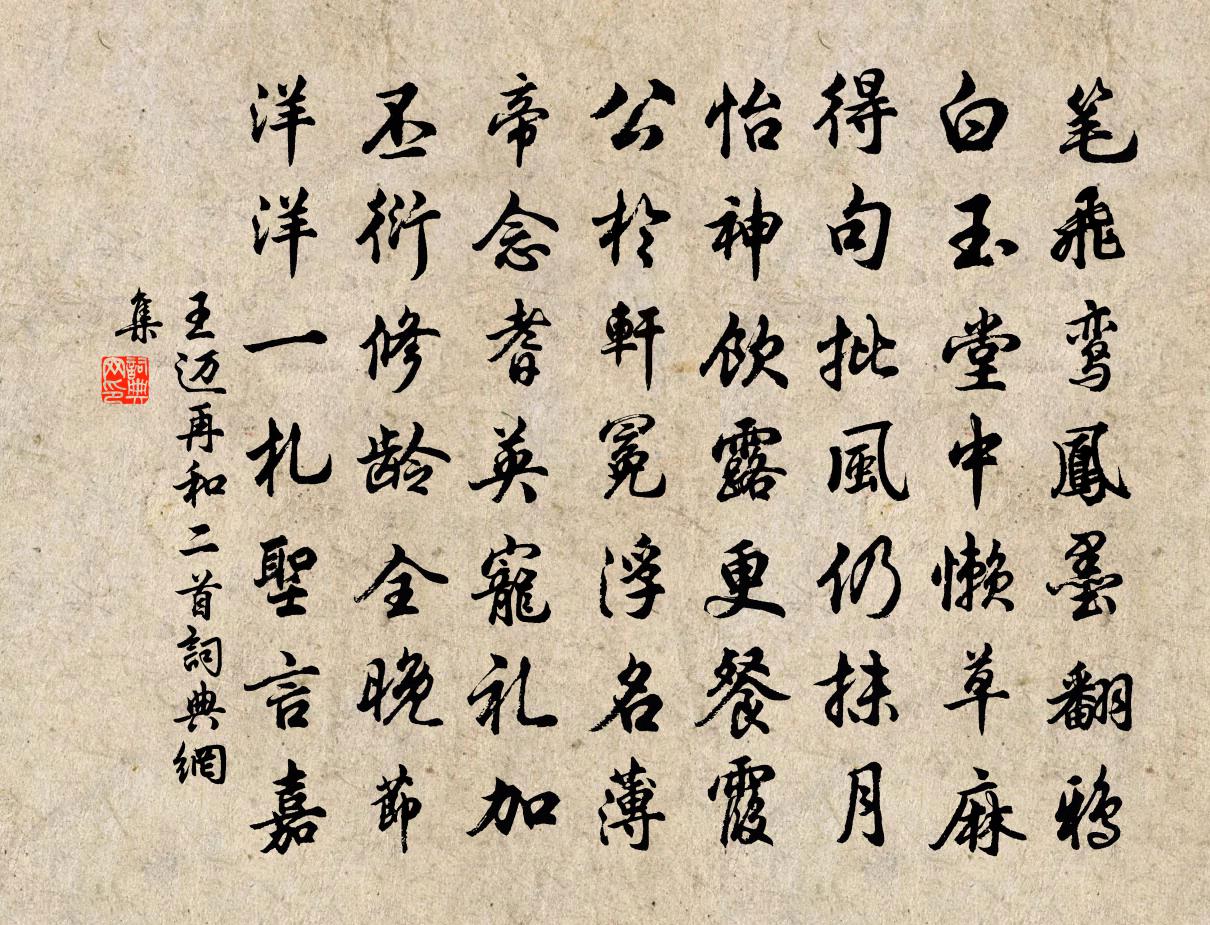 笔飛鸾鳳墨翻鸦
白玉堂中懒草麻
得句批風仍抹月
怡神飲露更餐霞
公於軒冕浮名薄
帝念耆英寵礼加
丕衍修龄全晚節
洋洋一札聖言嘉
王迈再和二首詞典網
集
詞典
网印